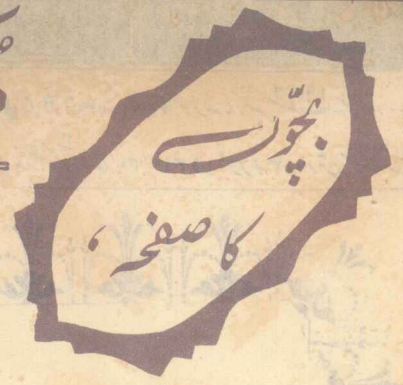 بچّوں
کا صفحہ،